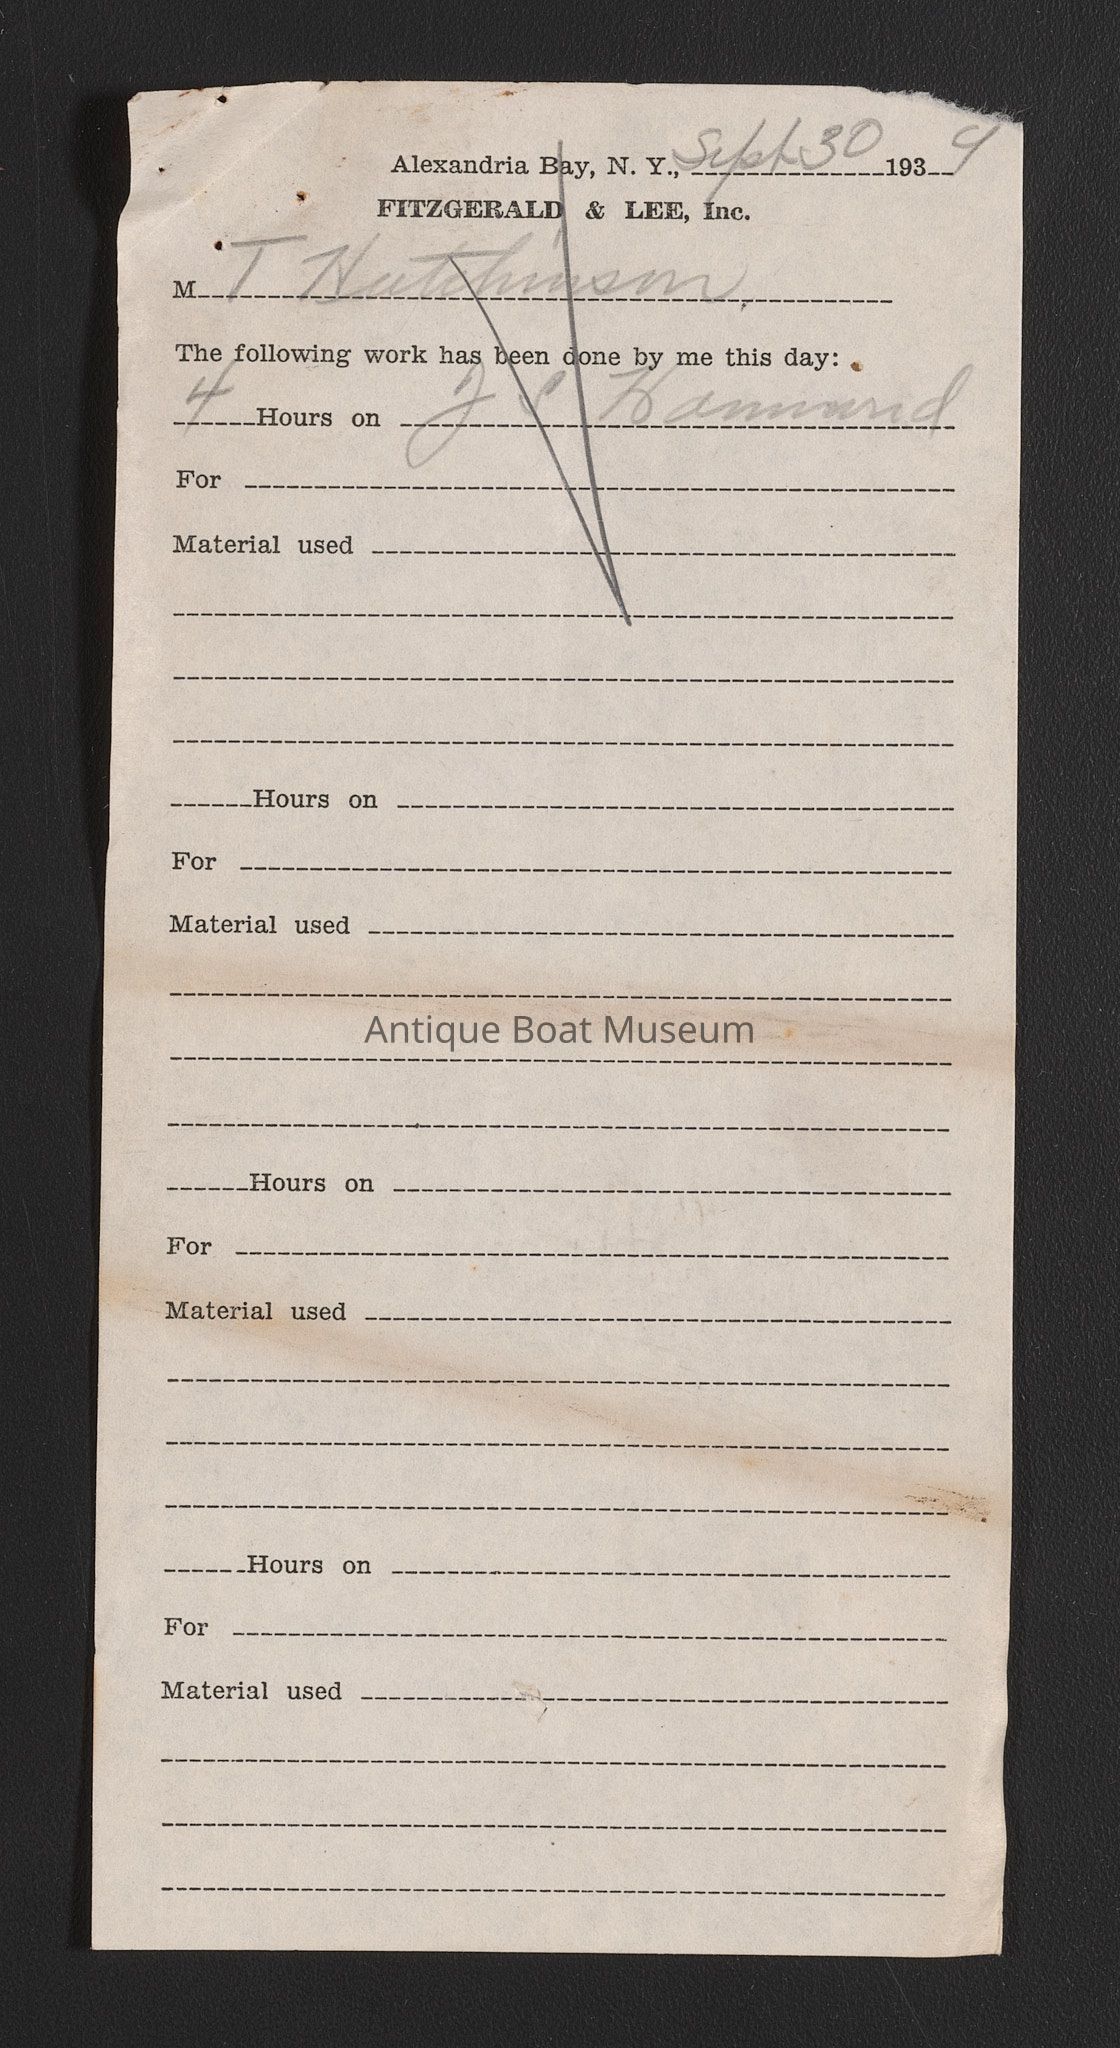 Alexandria Bay, N. Y., Sept 30 1939
FITZGERALD & LEE, Inc.
M T Hutchinson
The following work has been done by me this day:
4 Hours on J S
For
Material used
Hours on
For
Material used
Antique Boat Museum
Hours on
For
Material used
Hours on
For
Material used